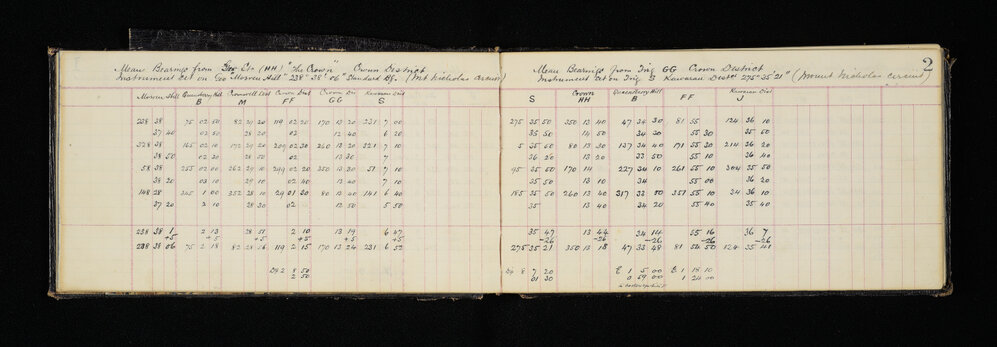 Mean Bearings from Geo Stn (HH) "The Crown" Crown District
Instrument set on Geo "Morven Hill" 238° 38' 06" Standard Bg. (Mt Nicholas Circuit)
Morven Hill Queensberry Hill Cromwell Dist Crown Dist Crown Dis Kawarau Dist
B M FF GG S
238 38 75 02 50 82 29 20 119 02 20 170 13 20 231 7 00
37 40 02 50 28 20 02 12 40 6 20
328 38 165 02 10 172 29 20 209 02 30 260 13 20 321 7 10
38 50 02 30 28 50 02 13 30 7
58 38 255 02 00 262 29 10 299 02 20 350 13 30 51 7 10
38 20 03 10 29 10 02 40 13 40 7 10
148 28 345 1 00 352 28 10 29 01 30 80 13 40 141 6 40
37 20 2 10 28 30 02 12 50 5 50
238 38 1 2 13 28 51 2 10 13 19 6 47
+5 +5 +5 +5 +5 +5
238 38 06 75 2 18 82 28 56 119 2 15 170 13 24 231 6 52
2 8 50
2 50
2
Mean Bearings from Trig GG Crown District
Instrument set on Trig S Kawarau Dist 275° 35' 21" (Mount Nicholas Circuit)
Crown Queensberry Hill Kawarau Dist
S HH B FF J
275 35 50 350 13 40 47 34 30 81 55 124 36 10
35 50 14 50 34 30 55 30 35 50
5 35 50 80 13 30 137 34 40 171 55 30 214 36 20
36 20 13 20 33 50 55 10 36 40
95 35 50 170 14 227 34 10 261 55 10 304 35 50
35 50 13 10 34 55 00 36 20
185 35 50 260 13 40 317 33 50 351 55 10 34 36 10
35 13 40 34 20 55 40 35 40
35 47 13 44 34 14 55 16 36 7
-26 -26 -26 -26 -26
275 35 21 350 13 18 47 33 48 81 54 50 124 35 41
8 7 20
01 30
E 1 5 00 E 1 18 10
0 59 00 1 24 00